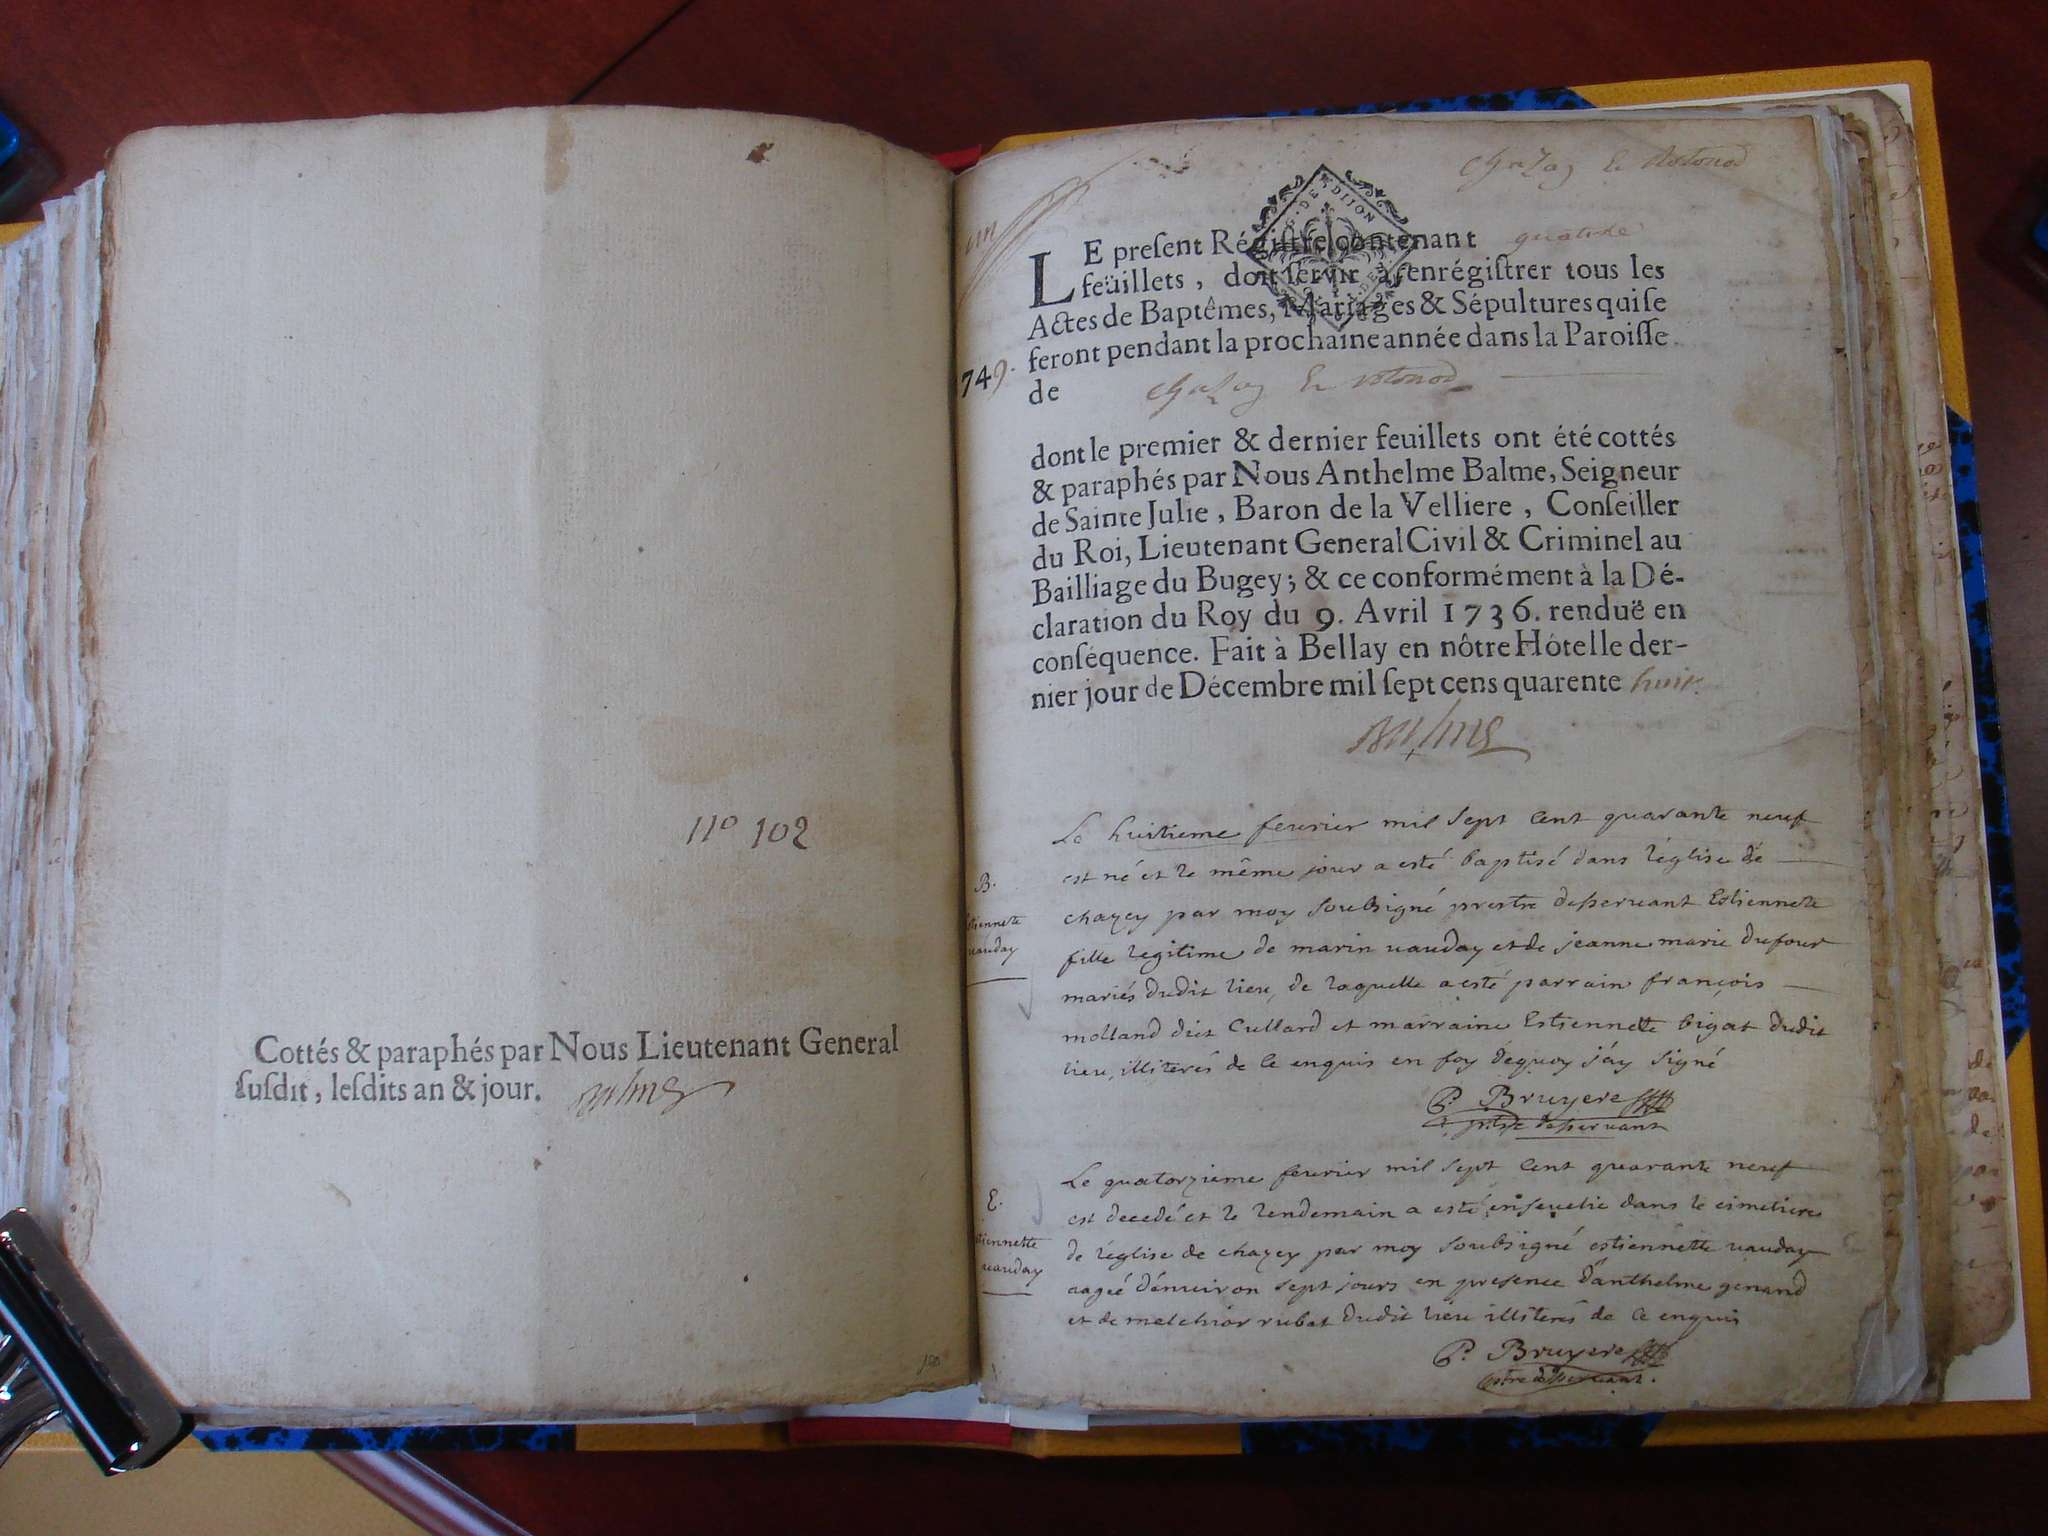 n° 102
Cottés & paraphés par Nous Lieutenant General
ſuſdit, leſdits an & jour. Balme
150
Chazay & Rotonod
G. DE DIJON
LE preſent Régiſtre contenant quatre
feüillets, doit ſervir à enrégiſtrer tous les
Actes de Baptêmes, Mariages & Sépultures qui ſe
feront pendant la prochaine année dans la Paroiſſe
749.
de Chazay & rotonod
dont le premier & dernier feuillets ont été cottés
& paraphés par Nous Anthelme Balme, Seigneur
de Sainte Julie, Baron de la Velliere, Conſeiller
du Roi, Lieutenant General Civil & Criminel au
Bailliage du Bugey; & ce conformément à la Dé-
claration du Roy du 9. Avril 1736. renduë en
conſéquence. Fait à Bellay en nôtre Hôtel le der-
nier jour de Décembre mil ſept cens quarente huit.
Balme
Le huitieme feurier mil sept cent quarante neuf
est né et le même jour a esté baptisé dans l'église de
B.
chazey par moy soubsigné prestre desseruant Estiennete
stiennete
uauday
fille legitime de marin uauday et de jeanne marie dufour
mariés dudit lieu, de laquelle a esté parrain françois
molland dict Cullard et marraine Estiennette bigat dudit
lieu, illiterés de ce enquis en foy dequoy j'ay signé
P. Bruyere
ptre desseruant
Le quatorzieme feurier mil sept cent quarante neuf
E.
est decedé et le lendemain a esté enseuelie dans le cimetiere
tiennette
uauday
de l'église de chazey par moy soubsigné estiennette uauday
aagée d'enuiron sept jours en presence d'anthelme genand
et de melchior rubat dudit lieu illiterés de ce enquis
P. Bruyere
ptre desseruant.